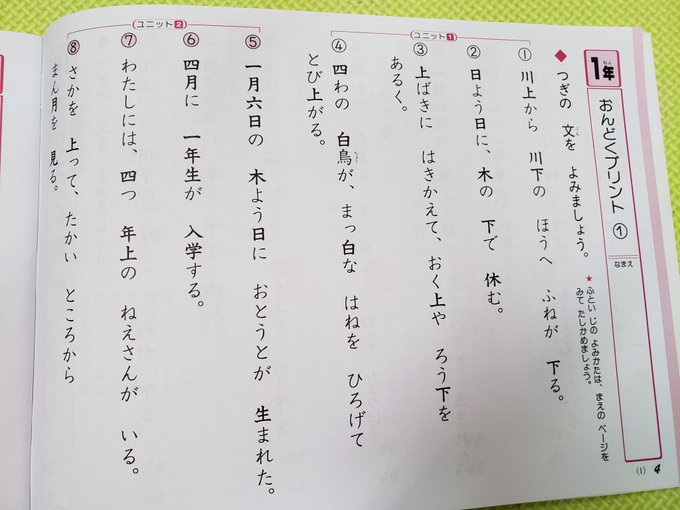 1年
ねん
おんどくプリント ①
なまえ
◆ つぎの 文を よみましょう。
ぶん
★ ふとい じの よみかたは、まえの ページを
みて たしかめましょう。
ユニット1
① 川上から 川下の ほうへ ふねが 下る。
② 日よう日に、木の 下で 休む。
③ 上ばきに はきかえて、おく上や ろう下を
あるく。
④ 四わの 白鳥が、まっ白な はねを ひろげて
ちょう
とび上がる。
ユニット2
⑤ 一月六日の 木よう日に おとうとが 生まれた。
⑥ 四月に 一年生が 入学する。
⑦ わたしには、四つ 年上の ねえさんが いる。
⑧ さかを 上って、たかい ところから
まん月を 見る。
(1) 4